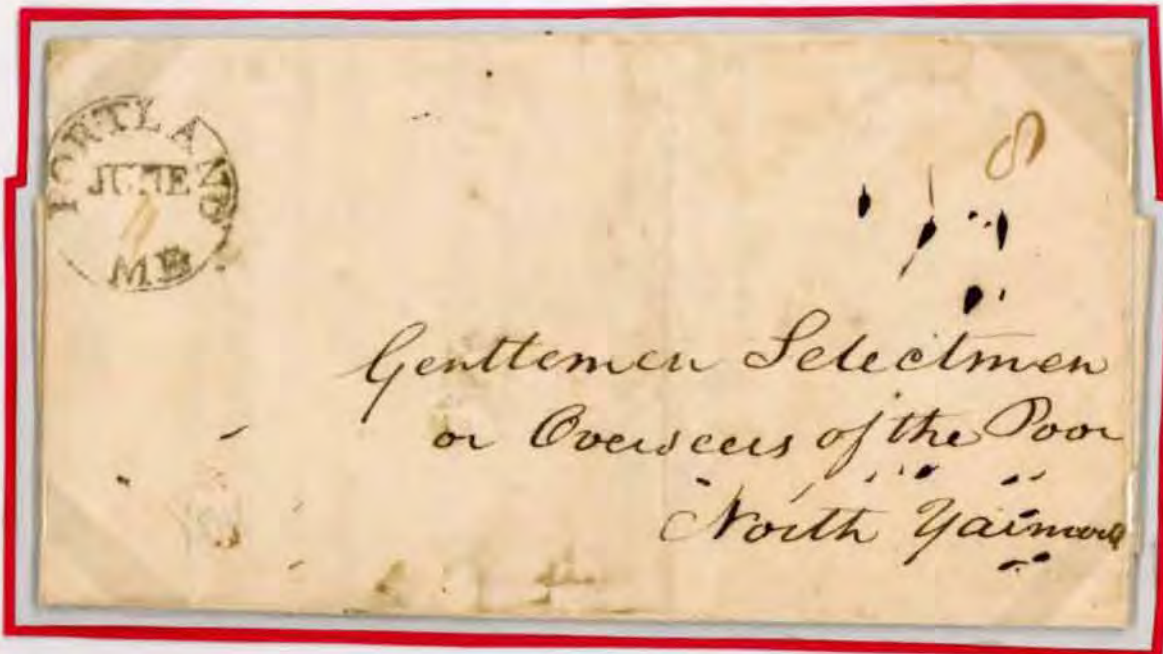 PORTLAND
JUNE
ME
Genttemen Selectmen
or Overseers of the Poor
North Yarmouth